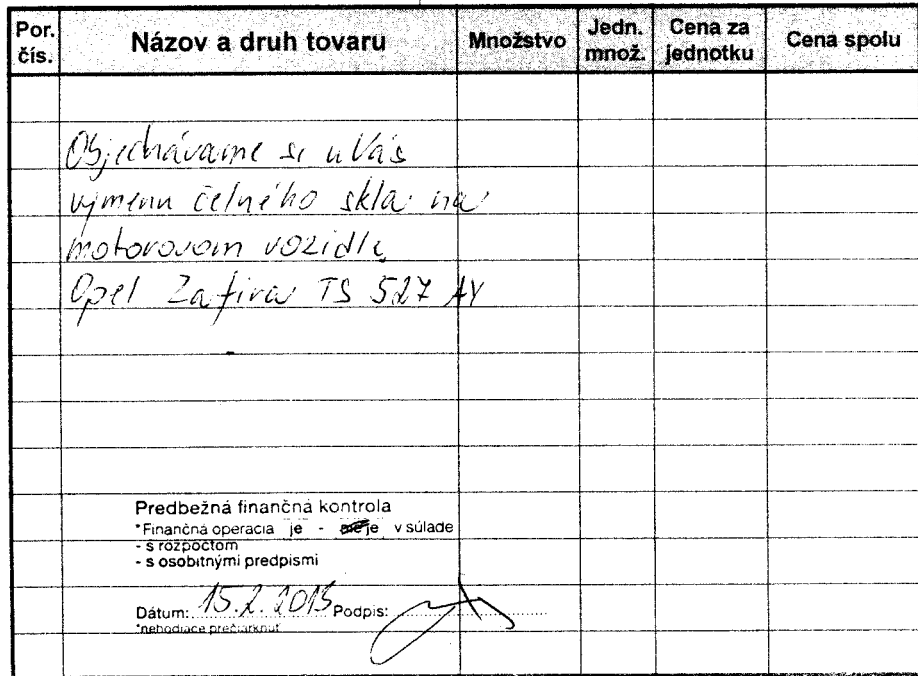 Por. čís. Názov a druh tovaru Množstvo Jedn. množ. Cena za jednotku Cena spolu
Objednávame si u Vás
výmenu čelného skla na
motorovom vozidle
Opel Zafira TS 527 AY
Predbežná finančná kontrola
*Finančná operácia je - nie je v súlade
- s rozpočtom
- s osobitnými predpismi
Dátum: 15.2.2013 Podpis:
*nehodiace prečiarknuť